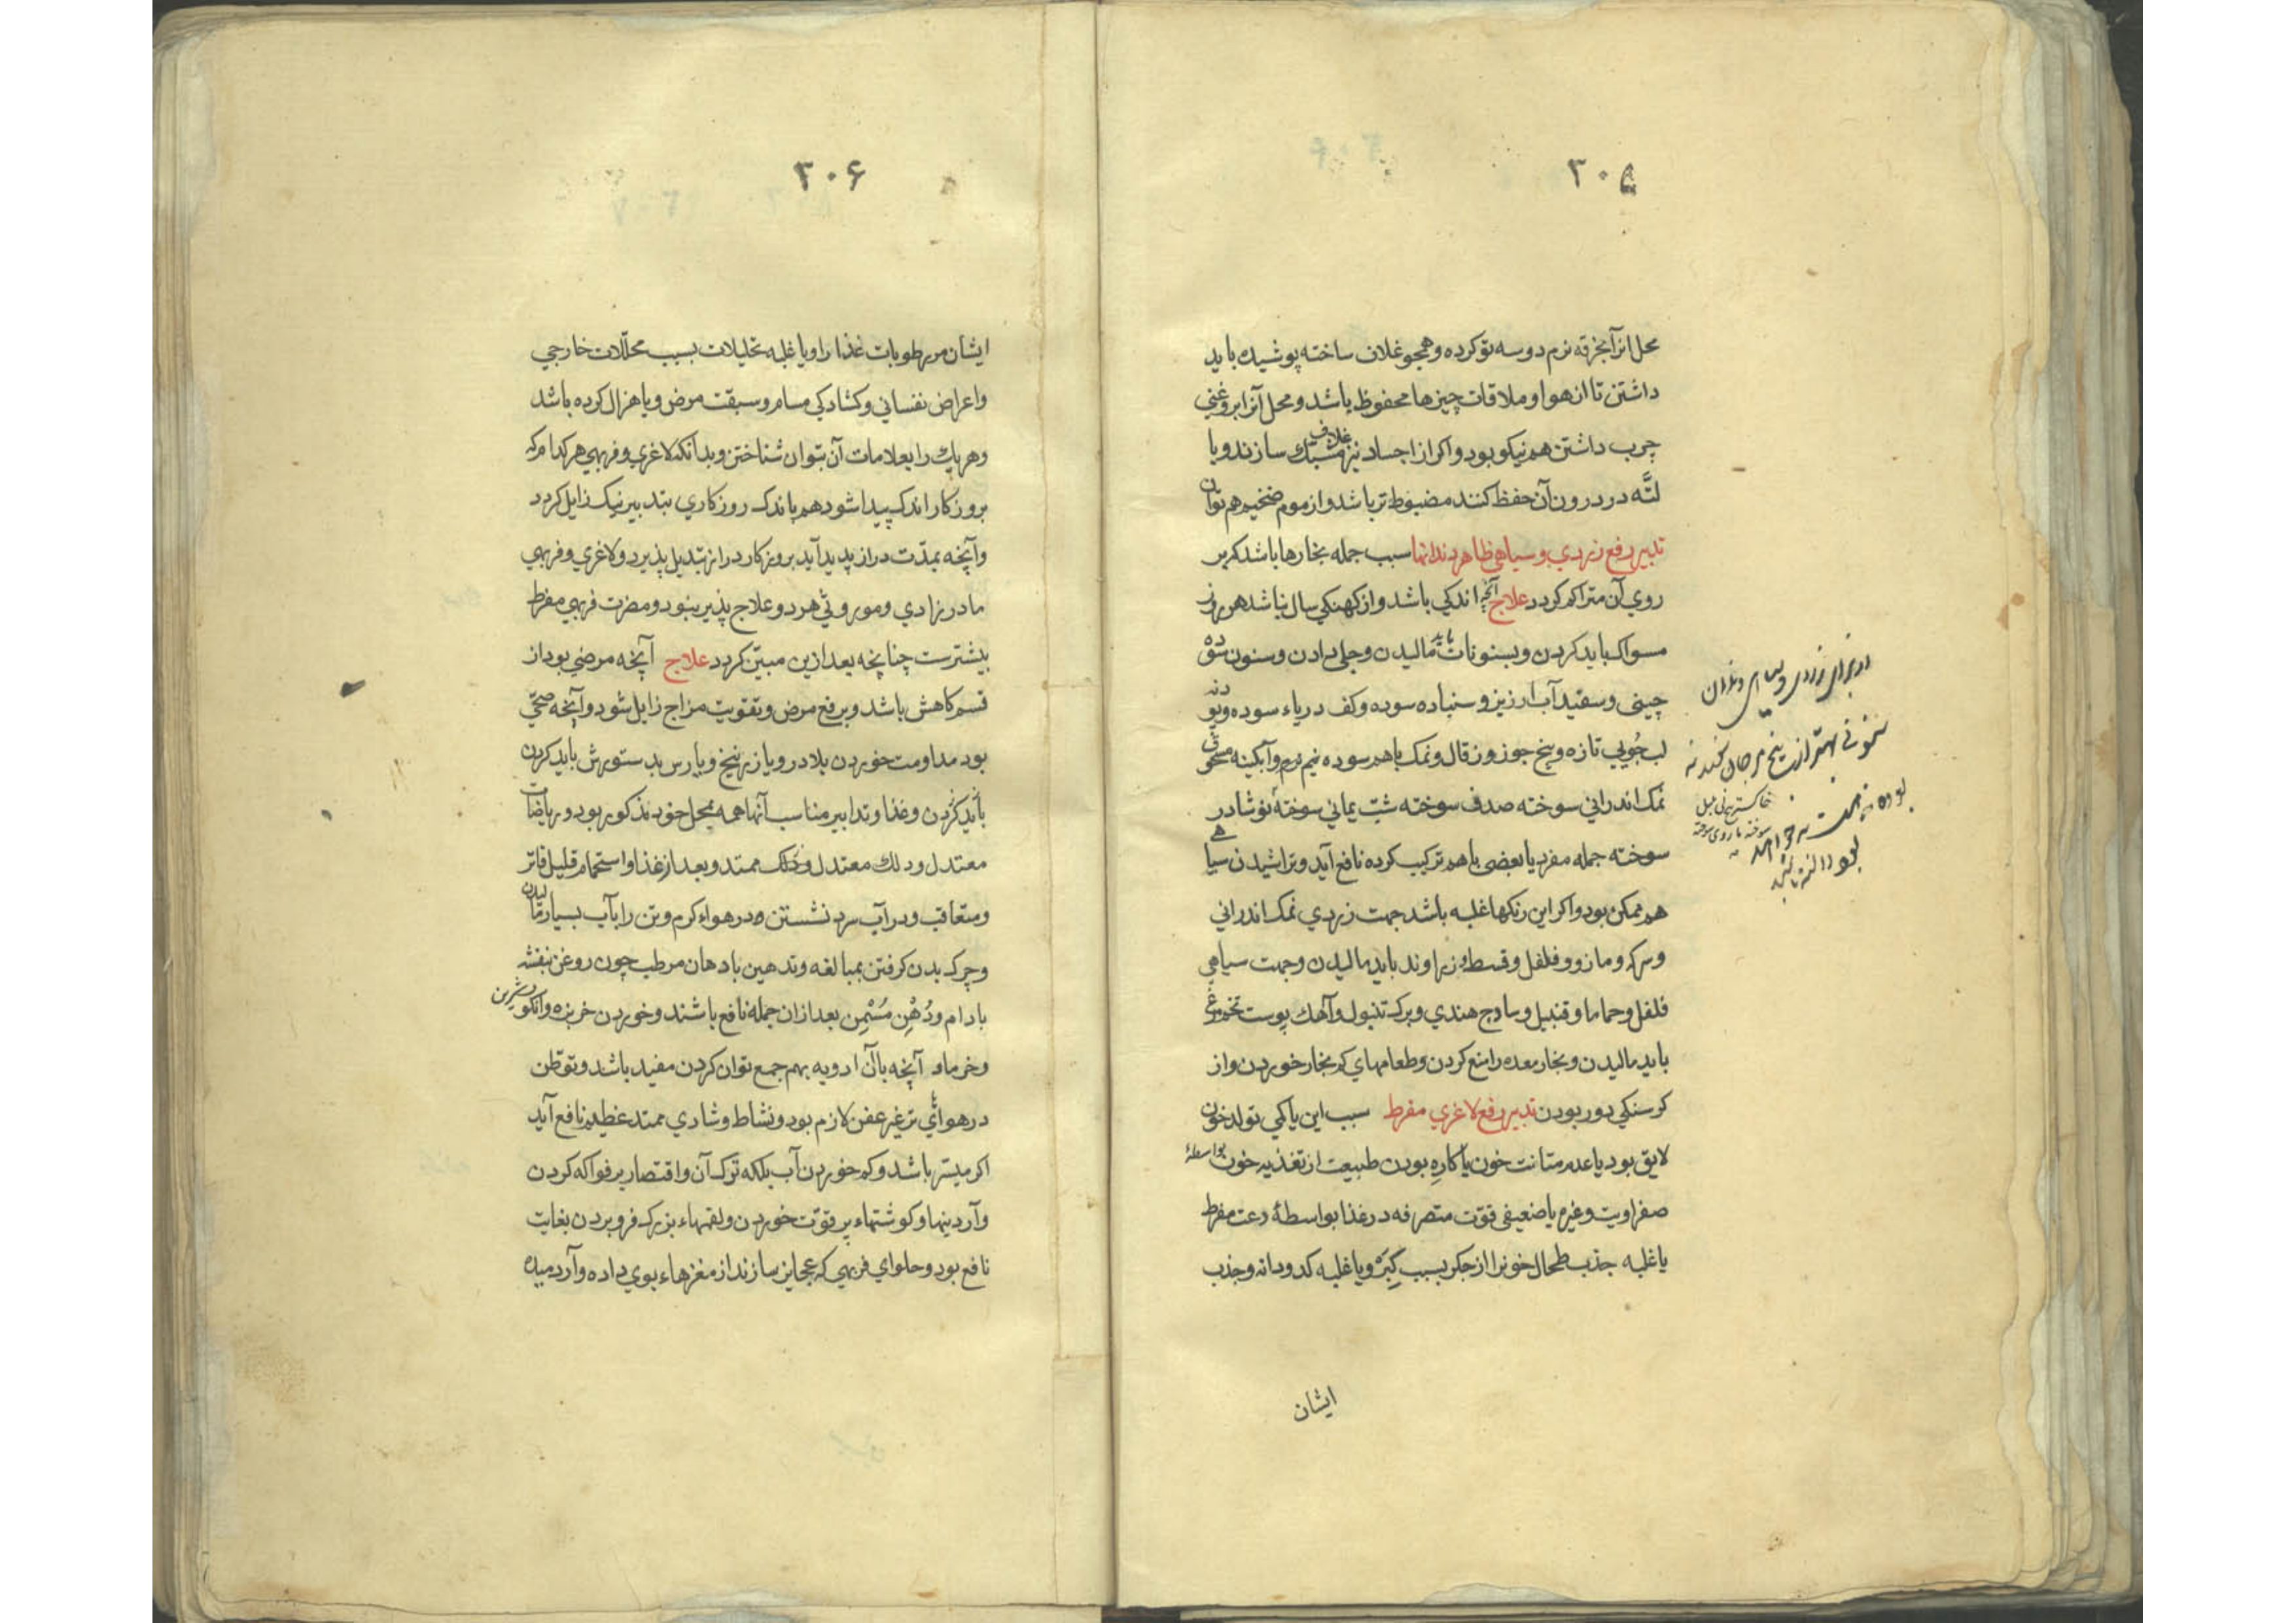 ۳۰۵
محل انرا بخرقه نرم دوسه تو کرده و همچو غلاف ساخته پوشیده باید
داشتن تا از هوا و ملاقات چیزها محفوظ باشد و محل آنرا بروغنی
چرب داشتن هم نیکو بود و اکر از اجساد نیز غلاف مشبک سازند و یا
لته در درون آن حفظ کنند مضبوط تر باشد و از موم ضخیم هم توان
تدبیر رفع زردی و سیاهی ظاهر دندانها سبب جمله بخارها باشد که بر
روی آن متراکم کردد علاج آنچه اندکی باشد و از کهنکی سال نباشد هر روز
مسواک باید کردن و بسنونات باید مالیدن و جلی دادن و سنون شقّ
چینی و سفید آب ارزیز و سنباده سوده و کف دریاء سوده و پودنه
لب جویی تازه و بیخ جوز و زقال و نمک باهم سوده نیم نرم و آبکینه مسحوق
نمک اندرانی سوخته صدف سوخته شب یمانی سوخته نوشادر
سوخته جمله مفرد یا بعضی باهم ترکیب کرده نافع آید و تراشیدن سیاهی
هم ممکن بود و اکر این رنکها غلبه باشد جهت زردی نمک اندرانی
و سرکه و مازو و فلفل و قسط و زراوند باید مالیدن و جهت سیاهی
فلفل و حماما و قنبیل و سادج هندی و برک تنبول و آهک پوست تخم مرغ
باید مالیدن و بخار معده را منع کردن و طعامهای کم بخار خوردن و از
کرسنکی دور بودن تدبیر رفع لاغری مفرط سبب این یا کمی تولد خون
لایق بود یا عدم متانت خون یا کاره بودن طبیعت از تغذیه خون بواسطهٔ
صفراویت و غیره یا ضعیفی قوّت متصرفه در غذا بواسطهٔ دعت مفرط
یا غلبه جذب طحال خونرا از جکر بسبب کبره و یا غلبه کدودانه و جذب
ایشان
از برای زردی و سیاهی دندان
سنونی بهتر از بیخ مرجان
خاکستر
سوخته
۳۰۶
ایشان مر رطوبات غذا را و یا غلبه تحلیلات بسبب محلّلات خارجی
و اعراض نفسانی و کشادکی مسام و سبقت مرض و یا هزال کرده باشد
و هر یک را بعلامات آن بتوان شناختن و بدانکه لاغری و فربهی هر کدام که
بروزکار اندک پیدا شود هم باندک روزکاری بتدبیر نیک زایل کردد
و آنچه بمدّت دراز پدید آید بروزکار دراز تبدیل پذیرد و لاغری و فربهی
مادرزادی و موروثی هر دو علاج پذیر نبود و مضرت فربهی مفرط
بیشترست چنانچه بعد ازین مبیّن کردد علاج آنچه مرضی بود از
قسم کاهش باشد و برفع مرض و تقویت مزاج زایل شود و آنچه صحّی
بود مداومت خوردن بلادر و یا زرنیخ و یا رس بدستورش باید کردن
باید کردن و غذا و تدابیر مناسب آنها همه بمحل خود مذکور بود و ریاضات
معتدل و دلک معتدل و دلک ممتد و بعد از غذا و استحمام قلیل فاتر
و متعاقب و در آب سرد نشستن و در هواء کرم و تن را بآب بسیار مالیدن
و چرک بدن کرفتن بمبالغه و تدهین بادهان مرطب چون روغن بنفشه
بادام و دُهْنِ مُسْمِن بعد از ان جمله نافع باشند و خوردن خربزه و انکور شیرین
و خرما و آنچه با آن ادویه بهم جمع توان کردن مفید باشد و توطّن
در هوائی تر غیر عفن لازم بود و نشاط و شادی ممتد عظیم نافع آید
اکر میسّر باشد و کم خوردن آب بلکه ترک آن و اقتصار بر فواکه کردن
و آردینها و کوشتهاء پر قوّت خوردن و لقمهاء بزرک فرو بردن بغایت
نافع بود و حلوای فربهی که عجایز سازند از مغزهاء بوی داده و آرد میده